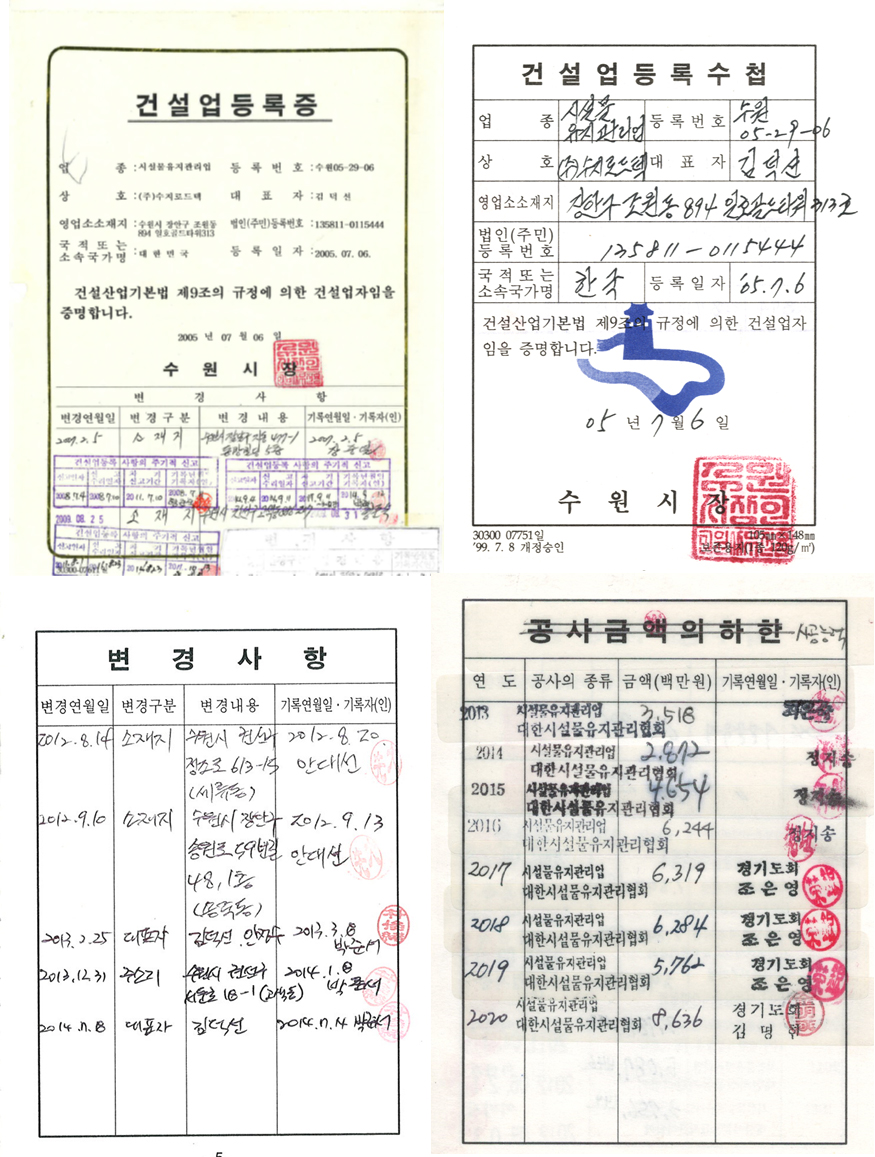 건설업등록증
업 종 : 시설물유지관리업 등 록 번 호 : 수원05-29-06
상 호 : (주)수지로드텍 대 표 자 : 김 덕 선
영업소소재지 : 수원시 장안구 조원동 법인(주민)등록번호 : 135811-0115444
894 일호골드타워313
국 적 또 는
소속국가명 : 대 한 민 국 등 록 일 자 : 2005. 07. 06.
건설산업기본법 제9조의 규정에 의한 건설업자임을
증명합니다.
2005 년 07 월 06 일
수 원 시 장
변 경 사 항
변경연월일 변 경 구 분 변 경 내 용 기록연월일·기록자(인)
2007. 2. 5 소 재 지 2007. 2. 5
건설업등록 사항의 주기적 신고
건설업등록 사항의 주기적 신고
2009. 08. 25 소 재 지
건설업등록 사항의 주기적 신고
건 설 업 등 록 수 첩
업 종 시설물 유지관리업 등 록 번 호 수원 05-29-06
상 호 (주)수지로드텍 대 표 자 김덕선
영업소소재지 장안구 조원동 894 313호
법인(주민)
등 록 번 호 135811-0115444
국 적 또 는
소속국가명 한국 등 록 일 자 '05. 7. 6
건설산업기본법 제9조의 규정에 의한 건설업자
임을 증명합니다.
05 년 7 월 6 일
수 원 시 장
30300 07751일
'99. 7. 8 개정승인
변 경 사 항
변경연월일 변경구분 변경내용 기록연월일·기록자(인)
2012. 8. 14 소재지 수원시 권선구 2012. 8. 20
정조로 613-15 안대선
(세류동)
2012. 9. 10 소재지 수원시 장안구 2012. 9. 13
송원로 59번길 안대선
48, 1층
2013. 2. 25 대표자 김덕선 2013. 3. 8
박준서
2013. 12. 31 수원시 권선구 2014. 1. 8
서둔로 18-1 박준서
2014. 7. 8 대표자 김덕선 2014. 7. 14 박준서
5
공 사 금 액 의 하 한 시공능력
연 도 공사의 종류 금액(백만원) 기록연월일·기록자(인)
2013 시설물유지관리업 3,518
대한시설물유지관리협회
2014 시설물유지관리업 2,872 정지송
대한시설물유지관리협회
2015 시설물유지관리업 4,654 정지송
대한시설물유지관리협회
2016 시설물유지관리업 6,244 정지송
대한시설물유지관리협회
2017 시설물유지관리업 6,319 경기도회
대한시설물유지관리협회 조 은 영
2018 시설물유지관리업 6,284 경기도회
대한시설물유지관리협회 조 은 영
2019 시설물유지관리업 5,762 경기도회
대한시설물유지관리협회 조 은 영
2020 시설물유지관리업 8,636 경기도회
대한시설물유지관리협회 김 명